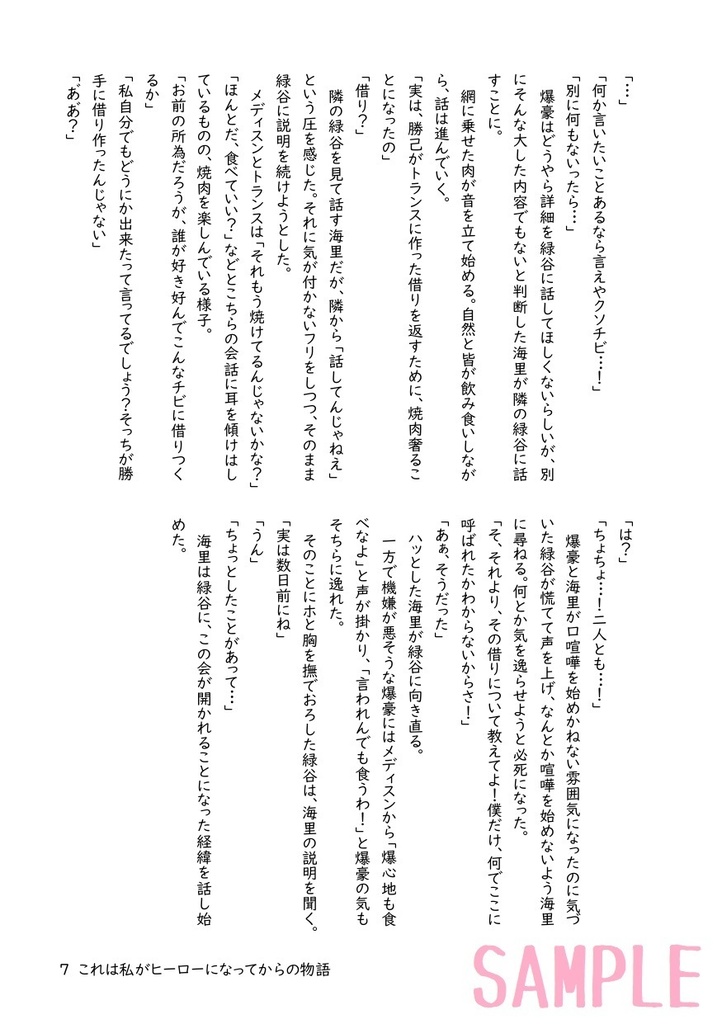 「…」
「何か言いたいことあるなら言えやクソチビ…！」
「別に何もないったら…」
　爆豪はどうやら詳細を緑谷に話してほしくないらしいが、別
にそんな大した内容でもないと判断した海里が隣の緑谷に話
すことに。
　網に乗せた肉が音を立て始める。自然と皆が飲み食いしなが
ら、話は進んでいく。
「実は、勝己がトランスに作った借りを返すために、焼肉奢るこ
とになったの」
「借り？」
　隣の緑谷を見て話す海里だが、隣から「話してんじゃねえ」
という圧を感じた。それに気が付かないフリをしつつ、そのまま
緑谷に説明を続けようとした。
　メディスンとトランスは「それもう焼けてるんじゃないかな？」
「ほんとだ、食べていい？」などとこちらの会話に耳を傾けはし
ているものの、焼肉を楽しんでいる様子。
「お前の所為だろうが、誰が好き好んでこんなチビに借りつく
るか」
「私自分でもどうにか出来たって言ってるでしょう？そっちが勝
手に借り作ったんじゃない」
「あ゙あ゙？」
「は？」
「ちょちょ…！二人とも…！」
　爆豪と海里が口喧嘩を始めかねない雰囲気になったのに気づ
いた緑谷が慌てて声を上げ、なんとか喧嘩を始めないよう海里
に尋ねる。何とか気を逸らせようと必死になった。
「そ、それより、その借りについて教えてよ！僕だけ、何でここに
呼ばれたかわからないからさ！」
「あぁ、そうだった」
　ハッとした海里が緑谷に向き直る。
　一方で機嫌が悪そうな爆豪にはメディスンから「爆心地も食
べなよ」と声が掛かり、「言われんでも食うわ！」と爆豪の気も
そちらに逸れた。
　そのことにホと胸を撫でおろした緑谷は、海里の説明を聞く。
「実は数日前にね」
「うん」
「ちょっとしたことがあって…」
　海里は緑谷に、この会が開かれることになった経緯を話し始
めた。
7 これは私がヒーローになってからの物語
SAMPLE